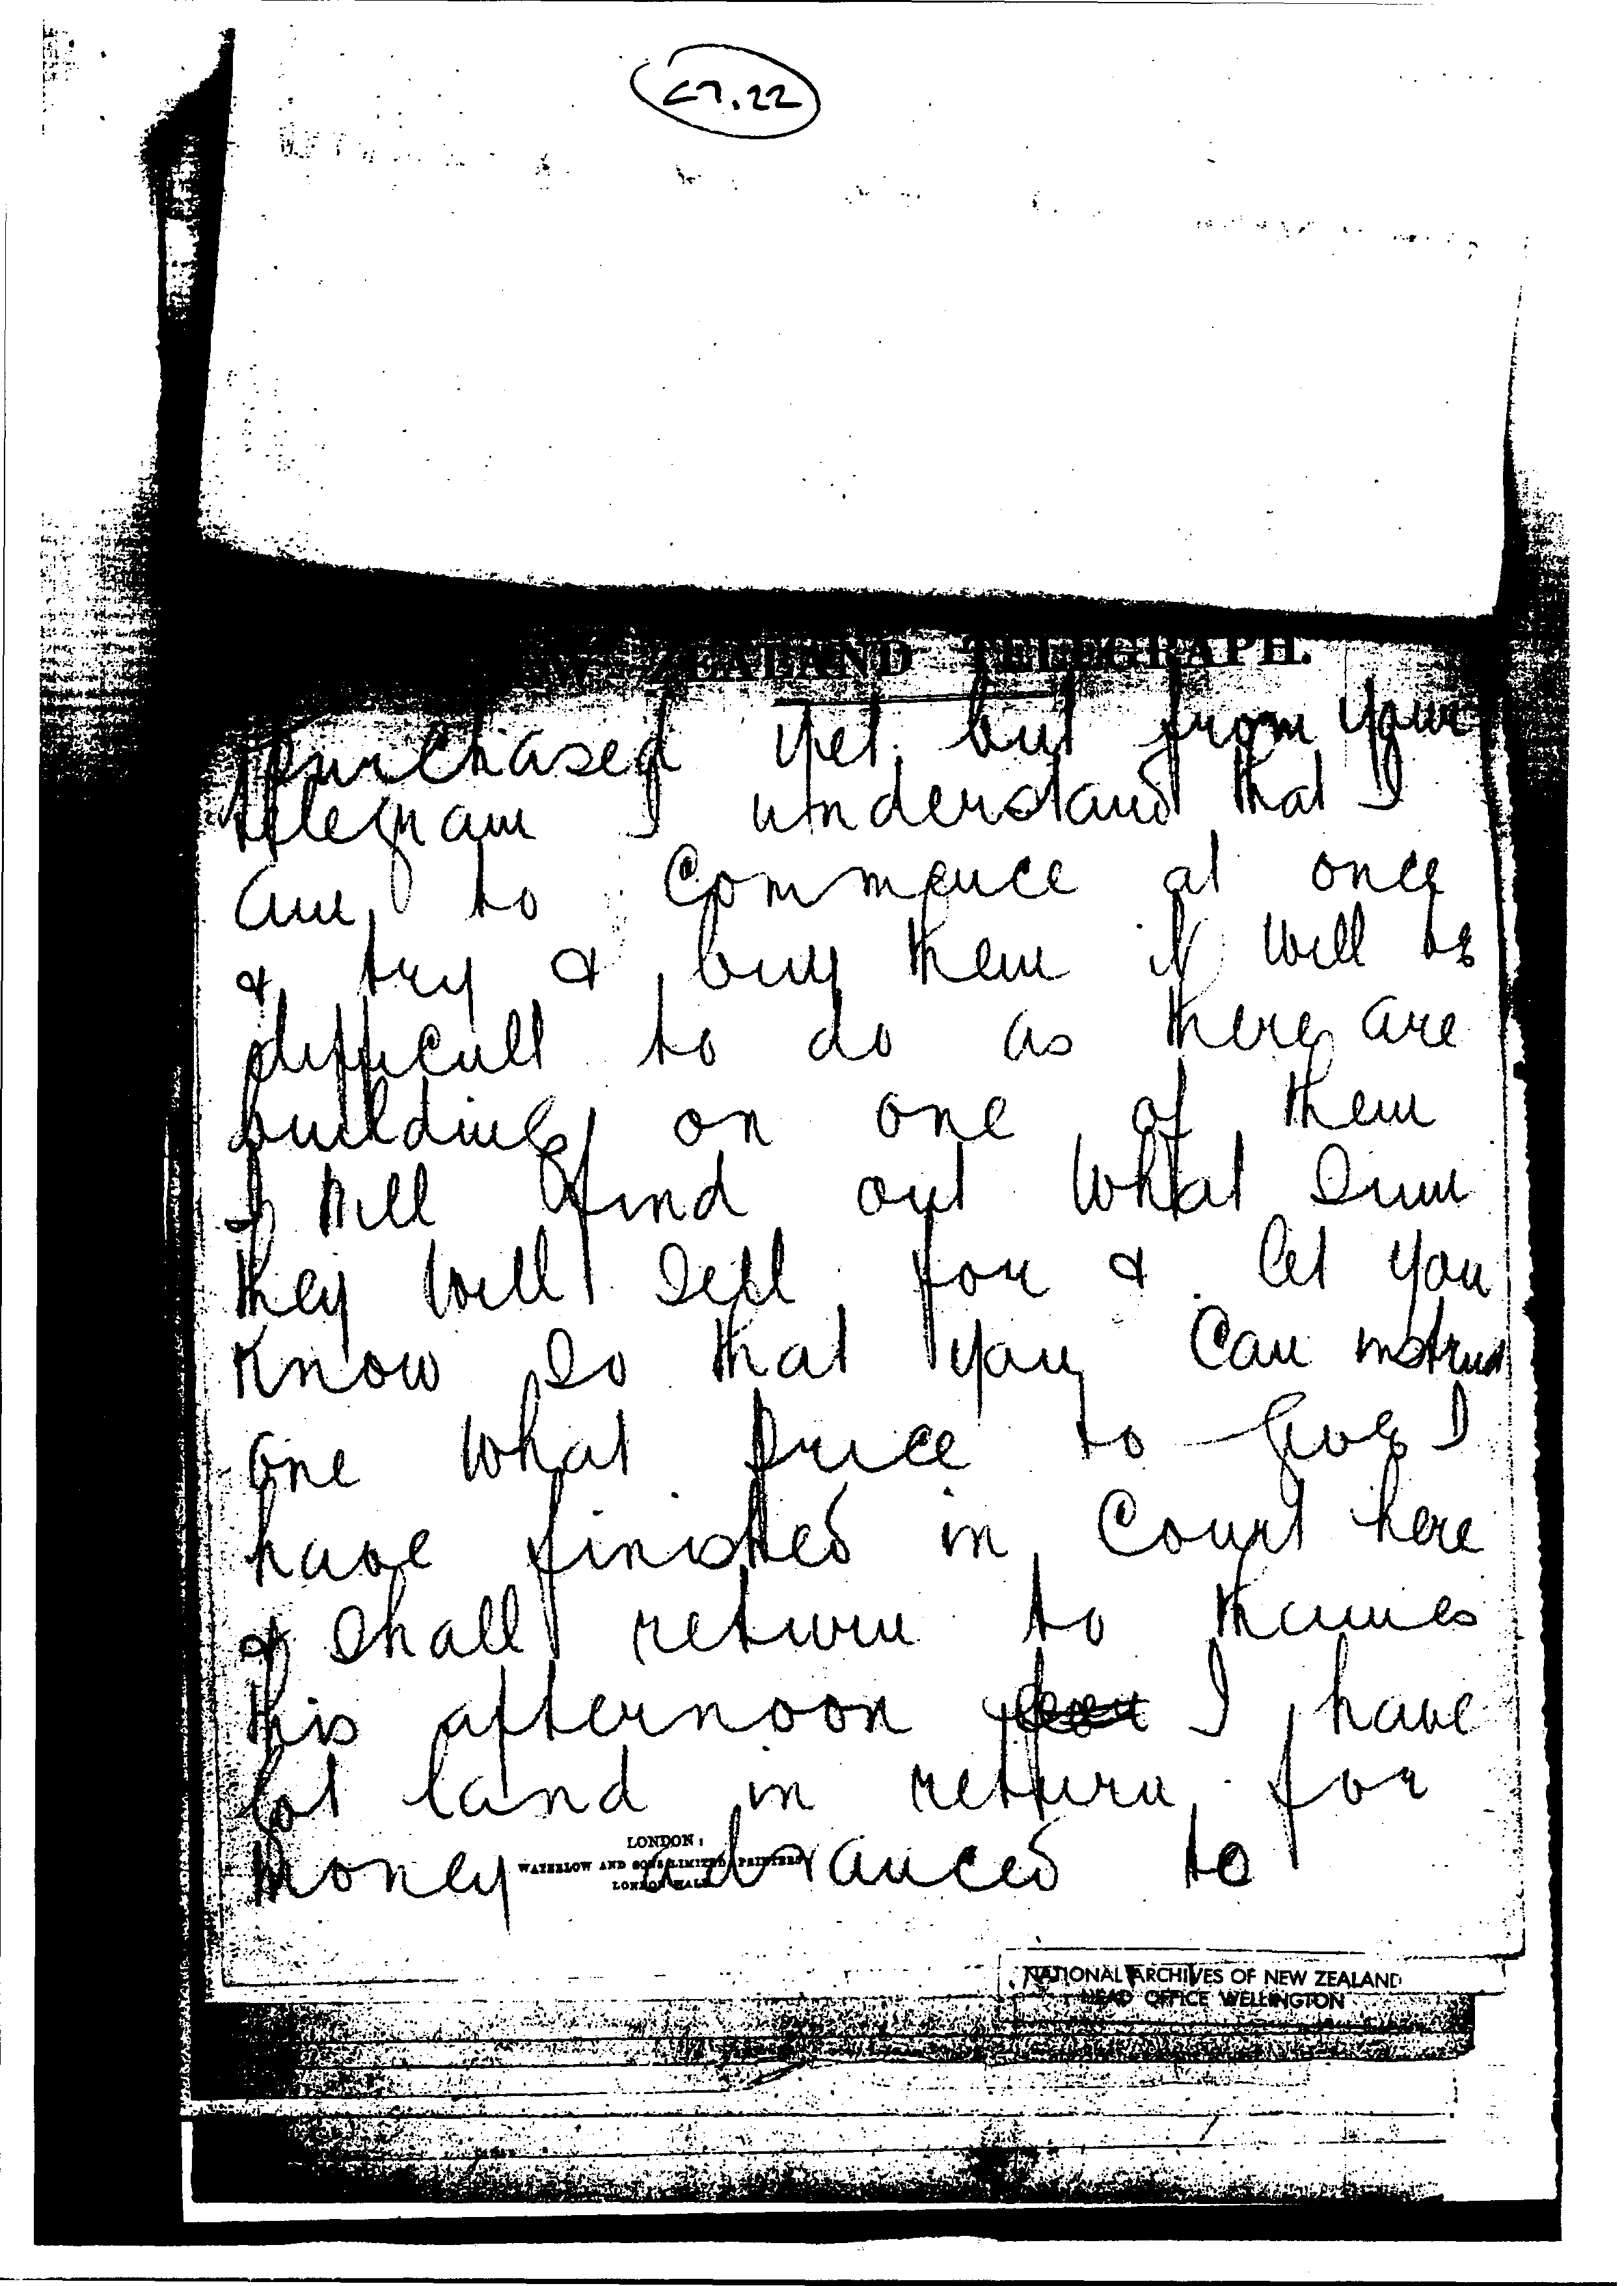 C7.22
NEW ZEALAND TELEGRAPH.
purchased yet but from your
telegram I understand that I
am to Commence at once
& try & buy them it will be
difficult to do as there are
buildings on one of them
I will find out what Sum
they will Sell for & let you
know So that you Can instruct
me what price to give I
have finished in Court here
& Shall return to thames
this afternoon I have
got land in return for
money advanced to
LONDON:
WATERLOW AND SONS LIMITED, PRINTERS,
LONDON WALL.
NATIONAL ARCHIVES OF NEW ZEALAND
HEAD OFFICE WELLINGTON